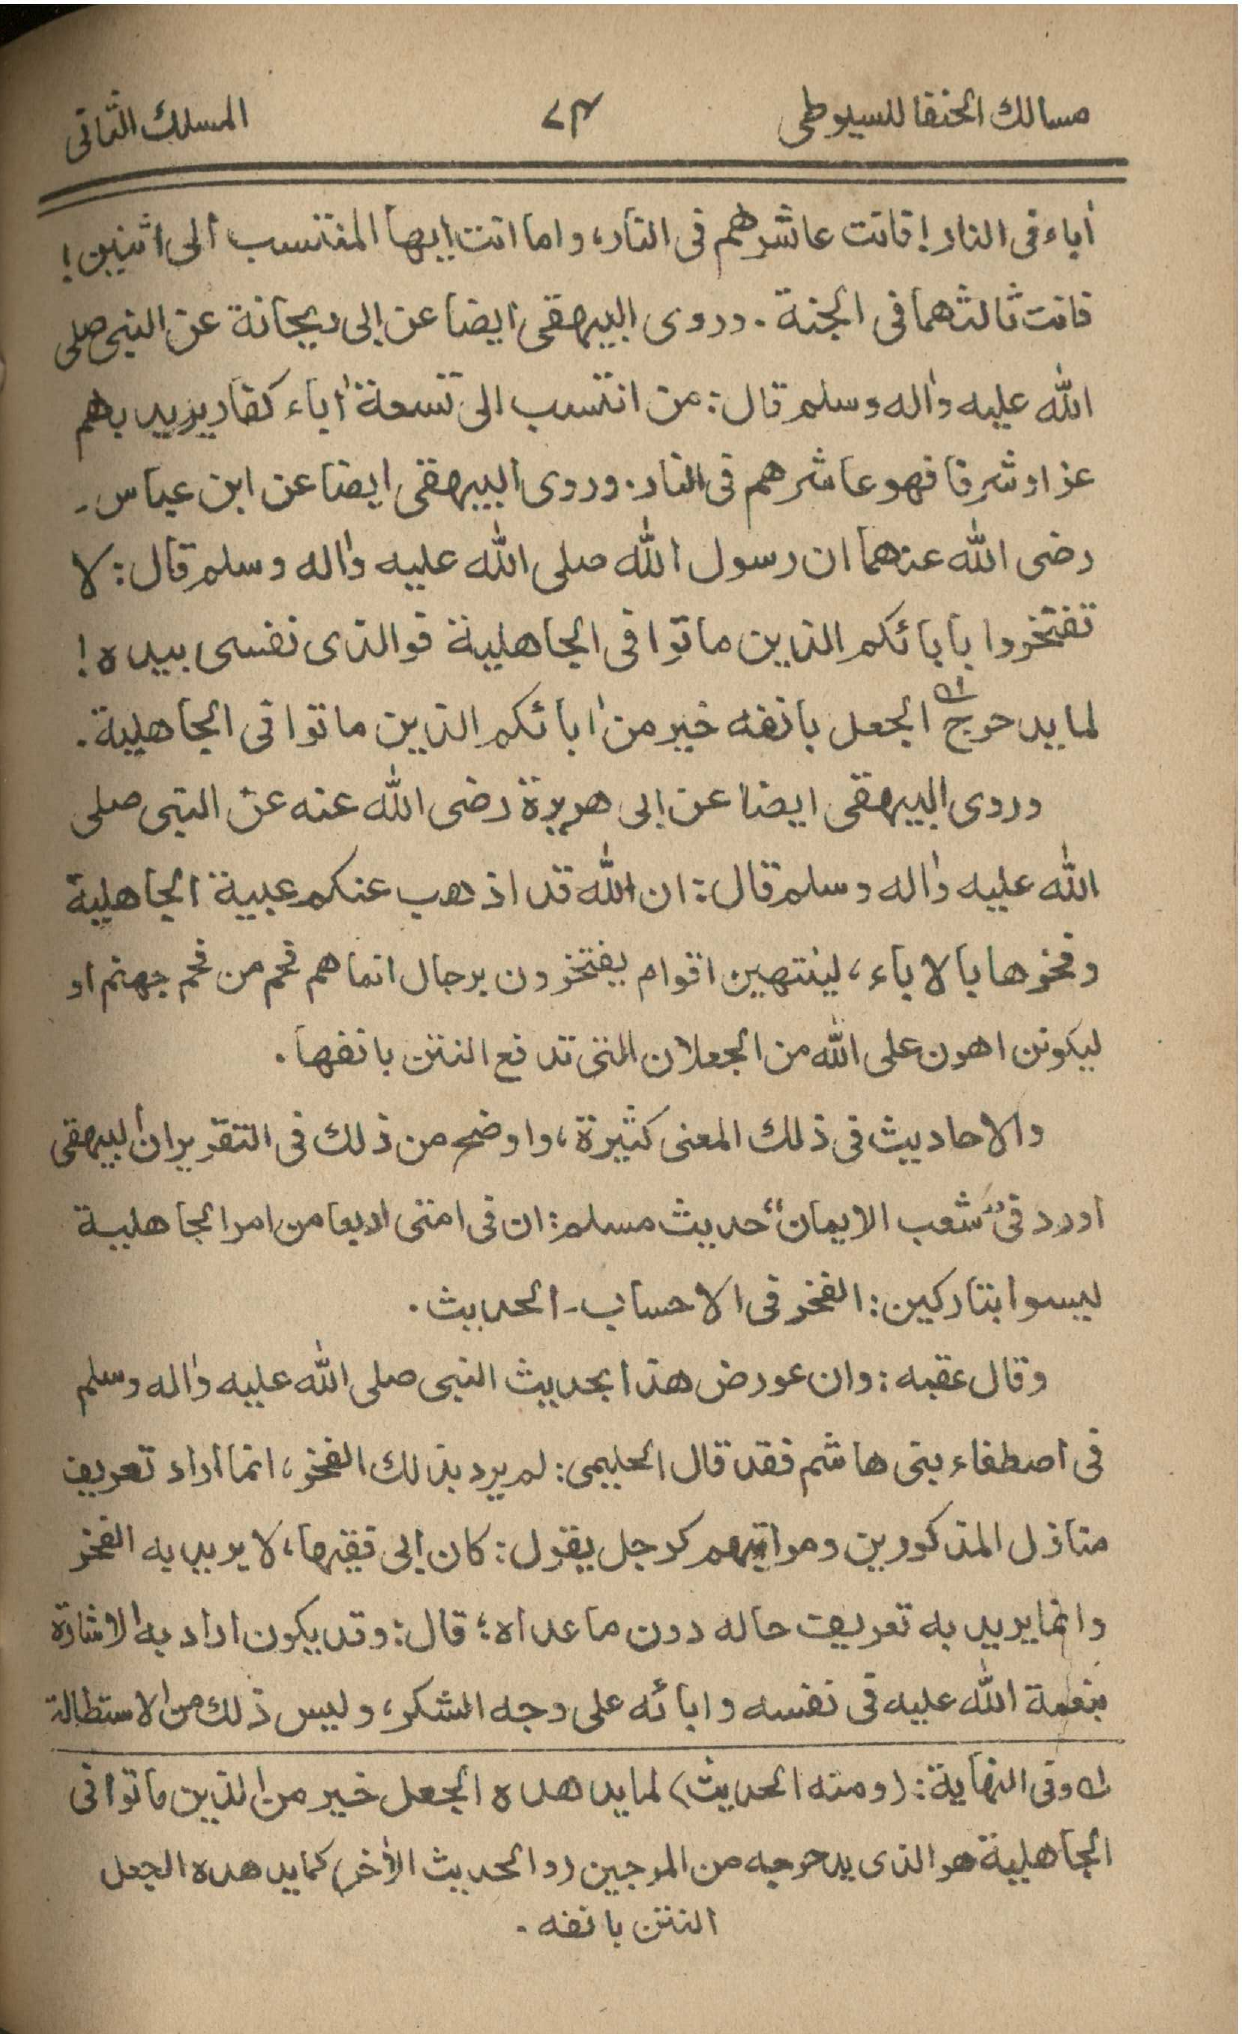 مسالك الحنفا للسيوطى ٧٣ المسلك الثانى
أباء فى النار! فانت عاشرهم فى النار، واما انت ايها المنتسب الى اثنين!
فانت ثالثهما فى الجنة. وروى البيهقى ايضا عن ابى ريحانة عن النبى صلى
الله عليه واله وسلم قال: من انتسب الى تسعة أباء كفار يريد بهم
عزا وشرفا فهو عاشرهم فى النار. وروى البيهقى ايضا عن ابن عباس ـ
رضى الله عنهما ان رسول الله صلى الله عليه واله وسلم قال: لا
تفتخروا بابائكم الذين ماتوا فى الجاهلية فوالذى نفسى بيده!
لما يدحرج الجعل بانفه خير من أبائكم الذين ماتوا فى الجاهلية.
وروى البيهقى ايضا عن ابى هريرة رضى الله عنه عن النبى صلى
الله عليه واله وسلم قال: ان الله قد اذهب عنكم عبية الجاهلية
وفخرها بالاباء، لينتهين اقوام يفتخرون برجال انما هم فحم من فحم جهنم او
ليكونن اهون على الله من الجعلان التى تدفع النتن بانفها.
والاحاديث فى ذلك المعنى كثيرة، واوضح من ذلك فى التقرير ان البيهقى
اورد فى "شعب الايمان" حديث مسلم: ان فى امتى اربعا من امر الجاهلية
ليسوا بتاركين: الفخر فى الاحساب ـ الحديث.
وقال عقبه: وان عورض هذا بحديث النبى صلى الله عليه واله وسلم
فى اصطفاء بنى هاشم فقد قال الحليمى: لم يرد بذلك الفخر، انما اراد تعريف
منازل المذكورين ومراتبهم كرجل يقول: كان ابى فقيها، لا يريد به الفخر
وانما يريد به تعريف حاله دون ما عداه؛ قال: وقد يكون اراد به الاشارة
بنعمة الله عليه فى نفسه وابائه على وجه الشكر، وليس ذلك من الاستطالة
ك وفى النهاية: (ومنه الحديث) لما يدهده الجعل خير من الذين ماتوا فى
الجاهلية هو الذى يدحرجه من السرجين (والحديث الأخر) كما يدهده الجعل
النتن بانفه.